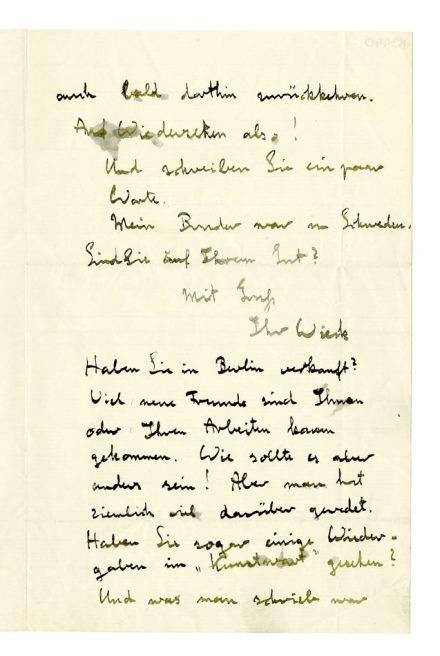 auch bald dorthin zurückkehren.
Auf Wiedersehen also!
Und schreiben Sie ein paar
Worte.
Mein Bruder war in Schweden.
Sind Sie auf Ihrem Gut?
Mit Gruß
Ihr
Haben Sie in Berlin verkauft?
Viel neue Freunde sind Ihnen
oder Ihren Arbeiten kaum
gekommen. Wie sollte es aber
anders sein! Aber man hat
ziemlich viel darüber geredet.
Haben Sie sogar einige Wieder-
gaben im „Kunstwart“ gesehen?
Und was man schrieb war